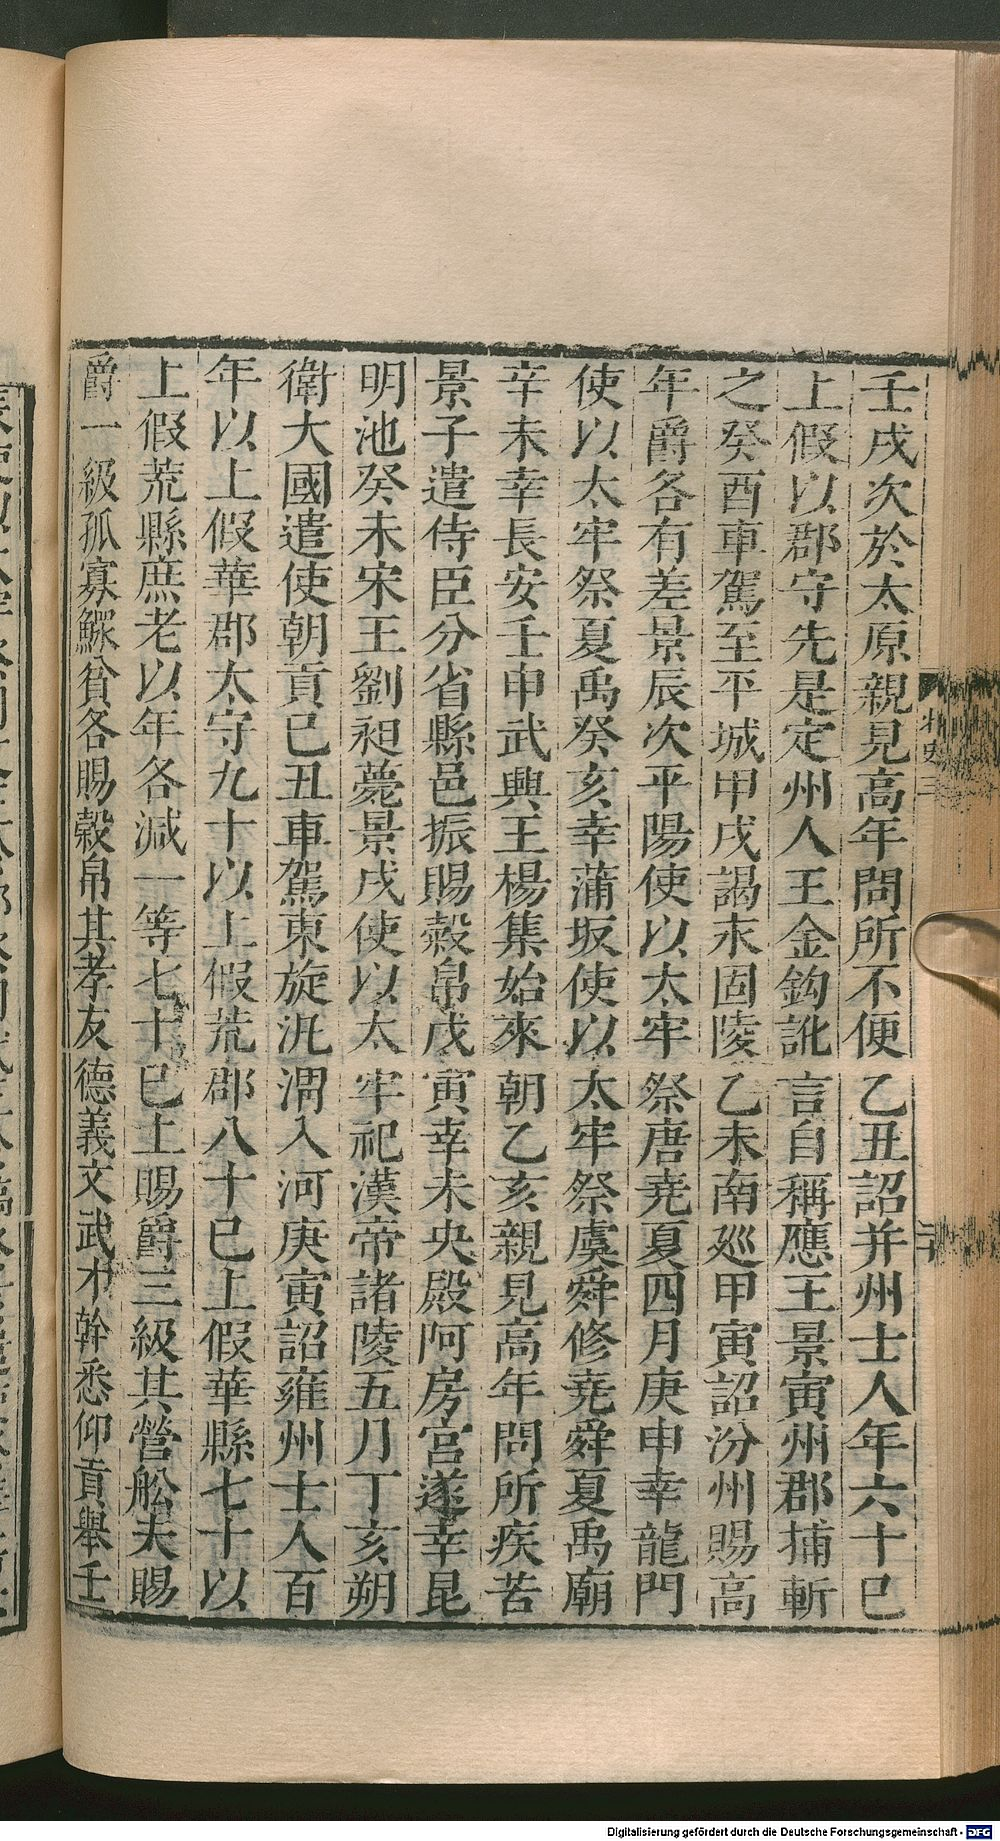 壬戌次於太原親見高年問所不便乙丑詔并州士人年六十已
上假以郡守先是定州人王金鈎訛言自稱應王景寅州郡捕斬
之癸酉車駕至平城甲戌謁永固陵乙未南廵甲寅詔汾州賜高
年爵各有差景辰次平陽使以太牢祭唐堯夏四月庚申幸龍門
使以太牢祭夏禹癸亥幸蒲坂使以太牢祭虞舜修堯舜夏禹廟
辛未幸長安壬申武興王楊集始來朝乙亥親見高年問所疾苦
景子遣侍臣分省縣邑振賜穀帛戊寅幸未央殿阿房宫遂幸昆
明池癸未宋王劉昶薨景戌使以太牢祀漢帝諸陵五月丁亥朔
衛大國遣使朝貢已丑車駕東旋汎渭入河庚寅詔雍州士人百
年以上假華郡太守九十以上假荒郡八十已上假華縣七十以
上假荒縣庶老以年各減一等七十已上賜爵三級其營舩夫賜
爵一級孤寡鰥貧各賜穀帛其孝友德義文武才幹悉仰貢舉壬
北史三
Digitalisierung gefördert durch die Deutsche Forschungsgemeinschaft - DFG